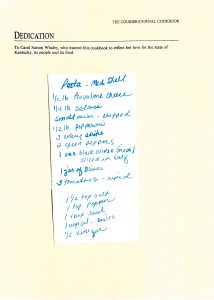 THE COURIER-JOURNAL COOKBOOK
DEDICATION
To Carol Sutton Whaley, who wanted this cookbook to reflect her love for the state of
Kentucky, its people and its food.
Pasta - Med Shell
1/2 lb Provolone Cheese
1/4 lb Salami
small onion - chopped
1/2 lb pepperoni
3 celery
2 green peppers
1 can black olives (med)
sliced in half
1 jar of olives
3 tomatoes -
1 1/2 tsp salt
1 tsp pepper
1 cup
1/2 vinegar